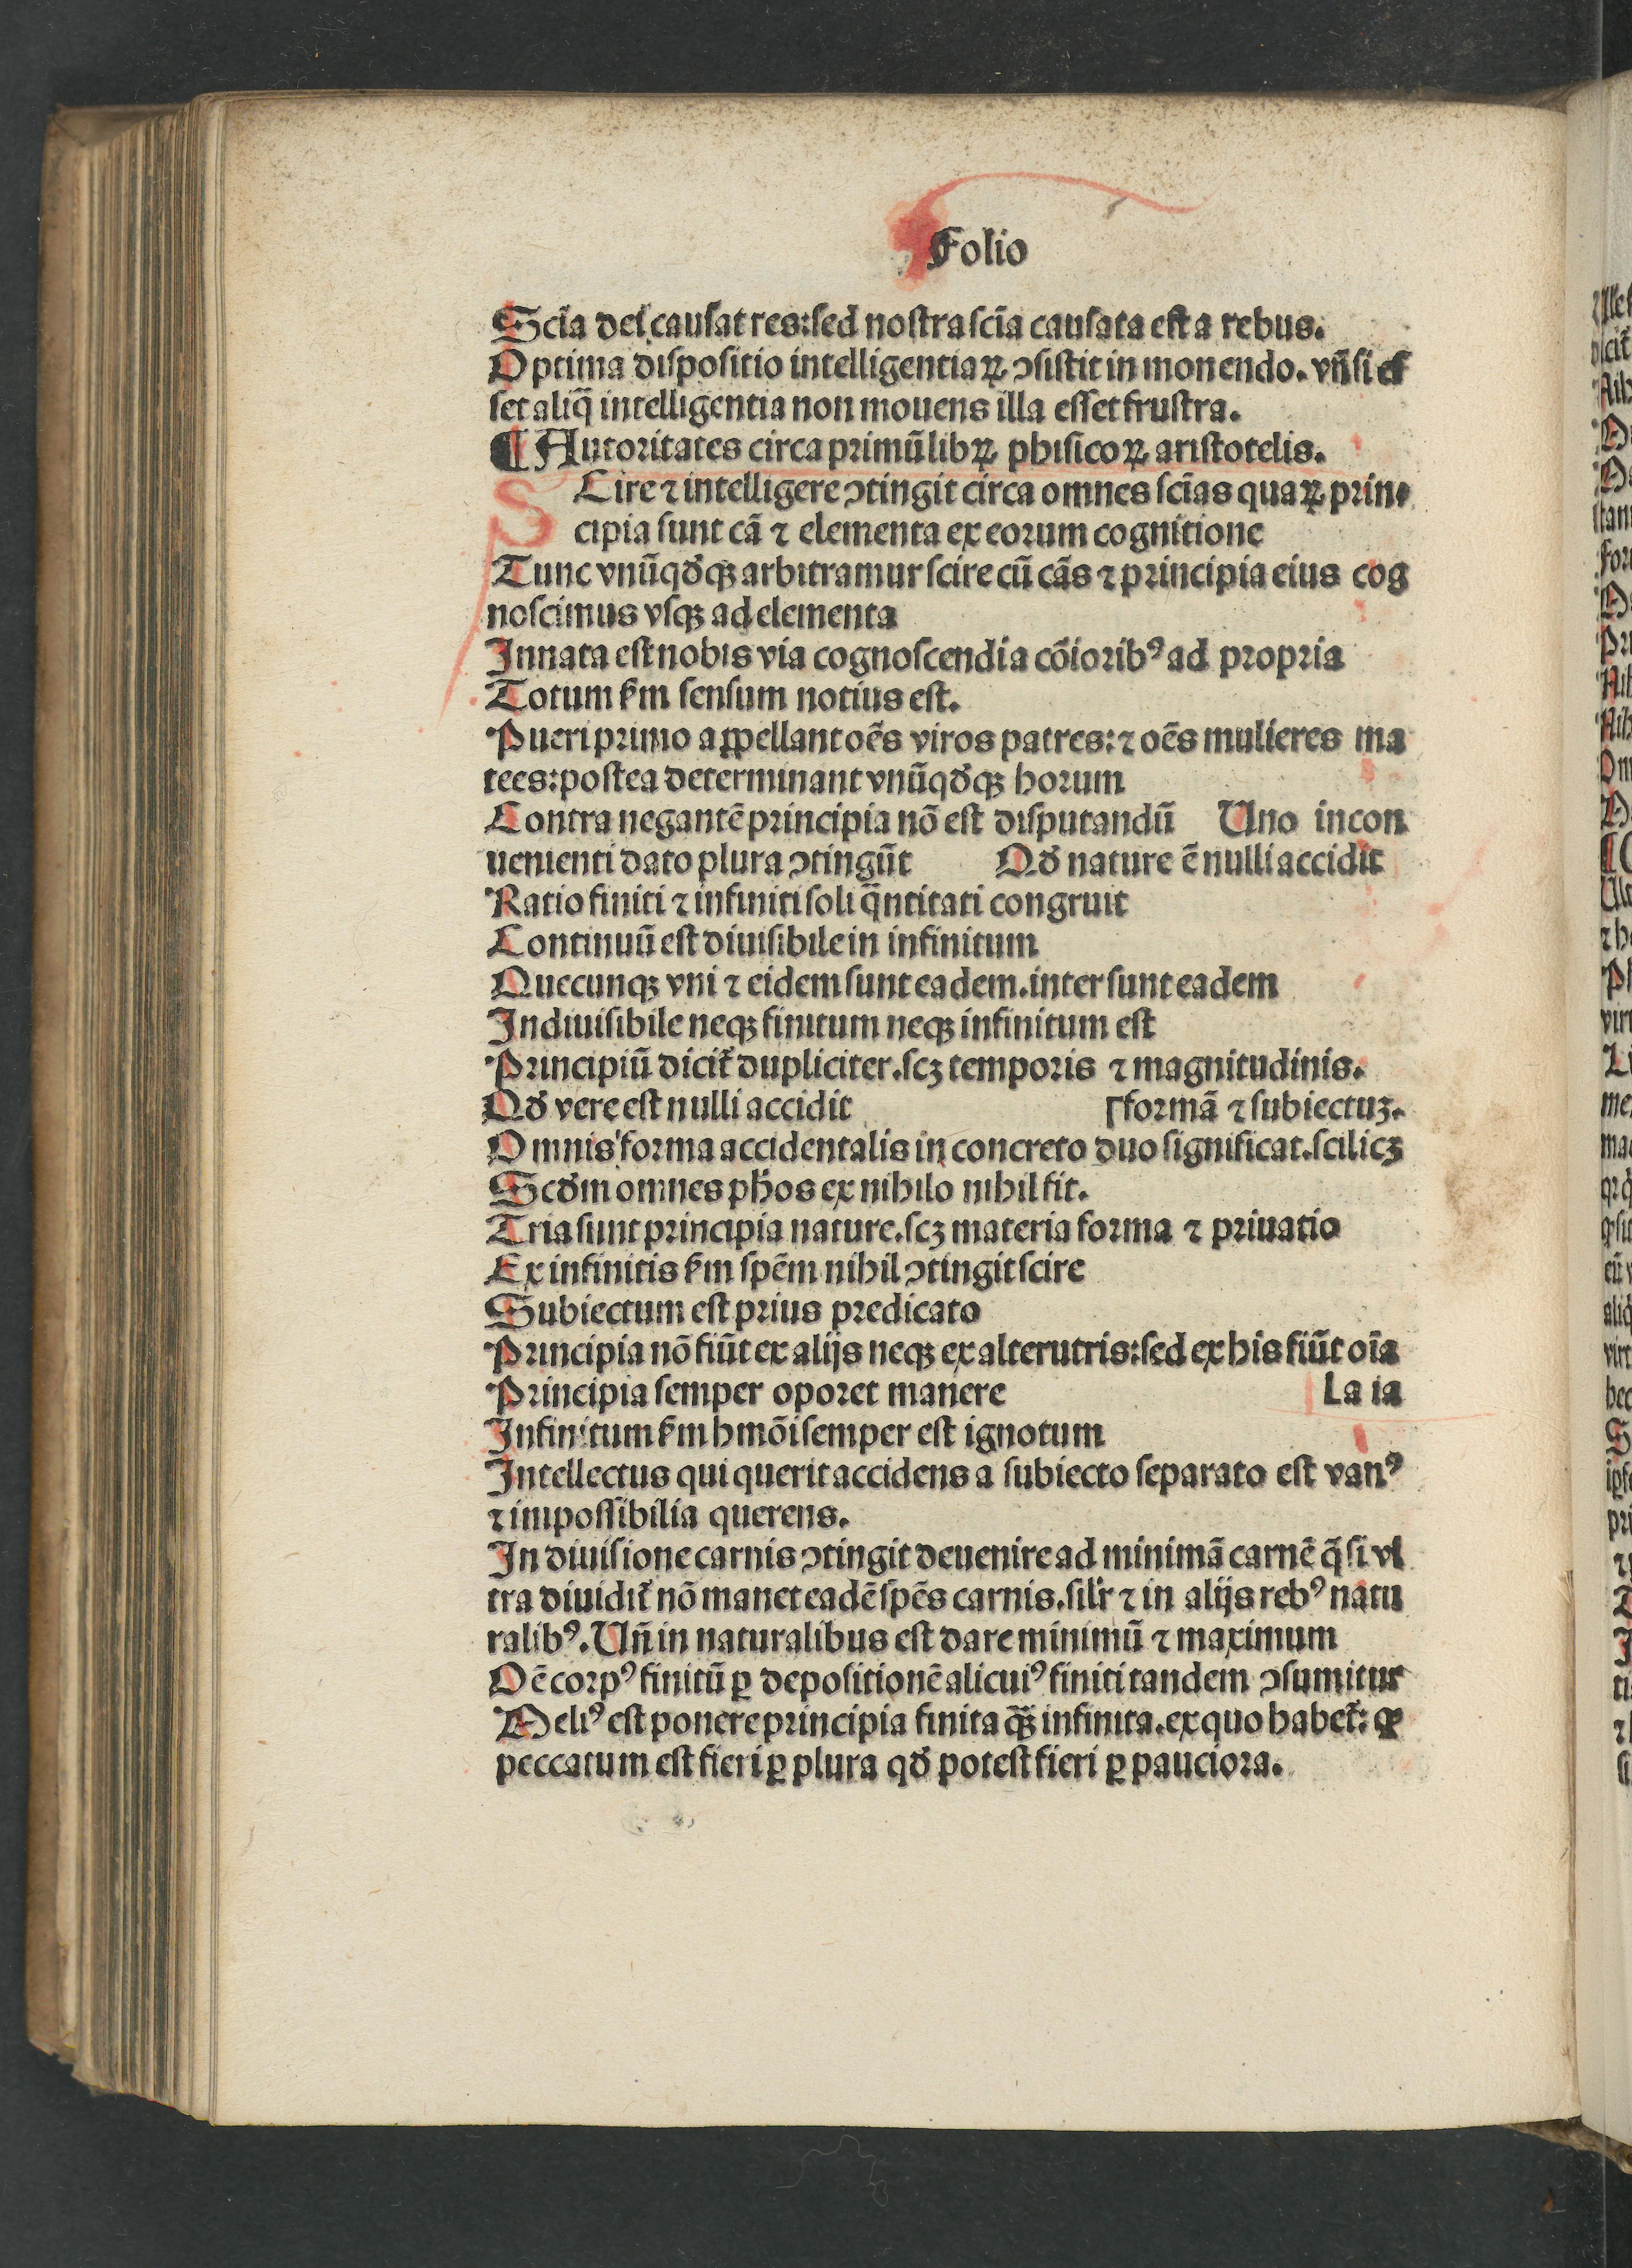 Folio
Scīa dei causat res: sed nostra scīa causata est a rebus.
Optima dispositio intelligentiaꝝ ↄsistit in monendo. vn̄ si es
set aliq̄ intelligentia non mouens illa esset frustra.
¶ Autoritates circa primū libꝝ phisicoꝝ aristotelis.
S Cire ⁊ intelligere ↄtingit circa omnes scīas quaꝝ prin
cipia sunt cā ⁊ elementa ex eorum cognitione
Tunc vnūqđqꝫ arbitramur scire cū cās ⁊ principia eius cog
noscimus vsqꝫ ad elementa
Innata est nobis via cognoscendi a cōioribꝰ ad propria
Totum ẜm sensum notius est.
Pueri primo appellant oēs viros patres: ⁊ oēs mulieres ma
tees: postea determinant vnūqđqꝫ horum
Contra negantē principia nō est disputandū Uno incon
uenienti dato plura ↄtingūt Qđ nature ē nulli accidit
Ratio finiti ⁊ infiniti soli q̄ntitati congruit
Continuū est diuisibile in infinitum
Quecunqꝫ vni ⁊ eidem sunt eadem. inter sunt eadem
Indiuisibile neqꝫ finitum neqꝫ infinitum est
Principiū dicit̄ dupliciter. scꝫ temporis ⁊ magnitudinis.
Qđ vere est nulli accidit ⌈formā ⁊ subiectuꝫ.
Omnis forma accidentalis in concreto duo significat. scilicꝫ
Scđm omnes pħos ex nihilo nihil fit.
Tria sunt principia nature. scꝫ materia forma ⁊ priuatio
Ex infinitis ẜm spēm nihil ↄtingit scire
Subiectum est prius predicato
Principia nō fiūt ex alijs neqꝫ ex alterutris: sed ex his fiūt oīa
Principia semper oporet manere La ia
Infinitum ẜm hmōi semper est ignotum
Intellectus qui querit accidens a subiecto separato est vanꝰ
⁊ impossibilia querens.
In diuisione carnis ↄtingit deuenire ad minimā carnē q̄ si vl
tra diuidit̄ nō manet eadē spēs carnis. silr̄ ⁊ in alijs rebꝰ natu
ralibꝰ. Un̄ in naturalibus est dare minimū ⁊ maximum
Oē corpꝰ finitū ꝑ depositionē alicuiꝰ finiti tandem ↄsumitur
Meliꝰ est ponere principia finita q̄ꝫ infinita. ex quo habet̄: ꝙ
peccatum est fieri ꝑ plura qđ potest fieri ꝑ pauciora.